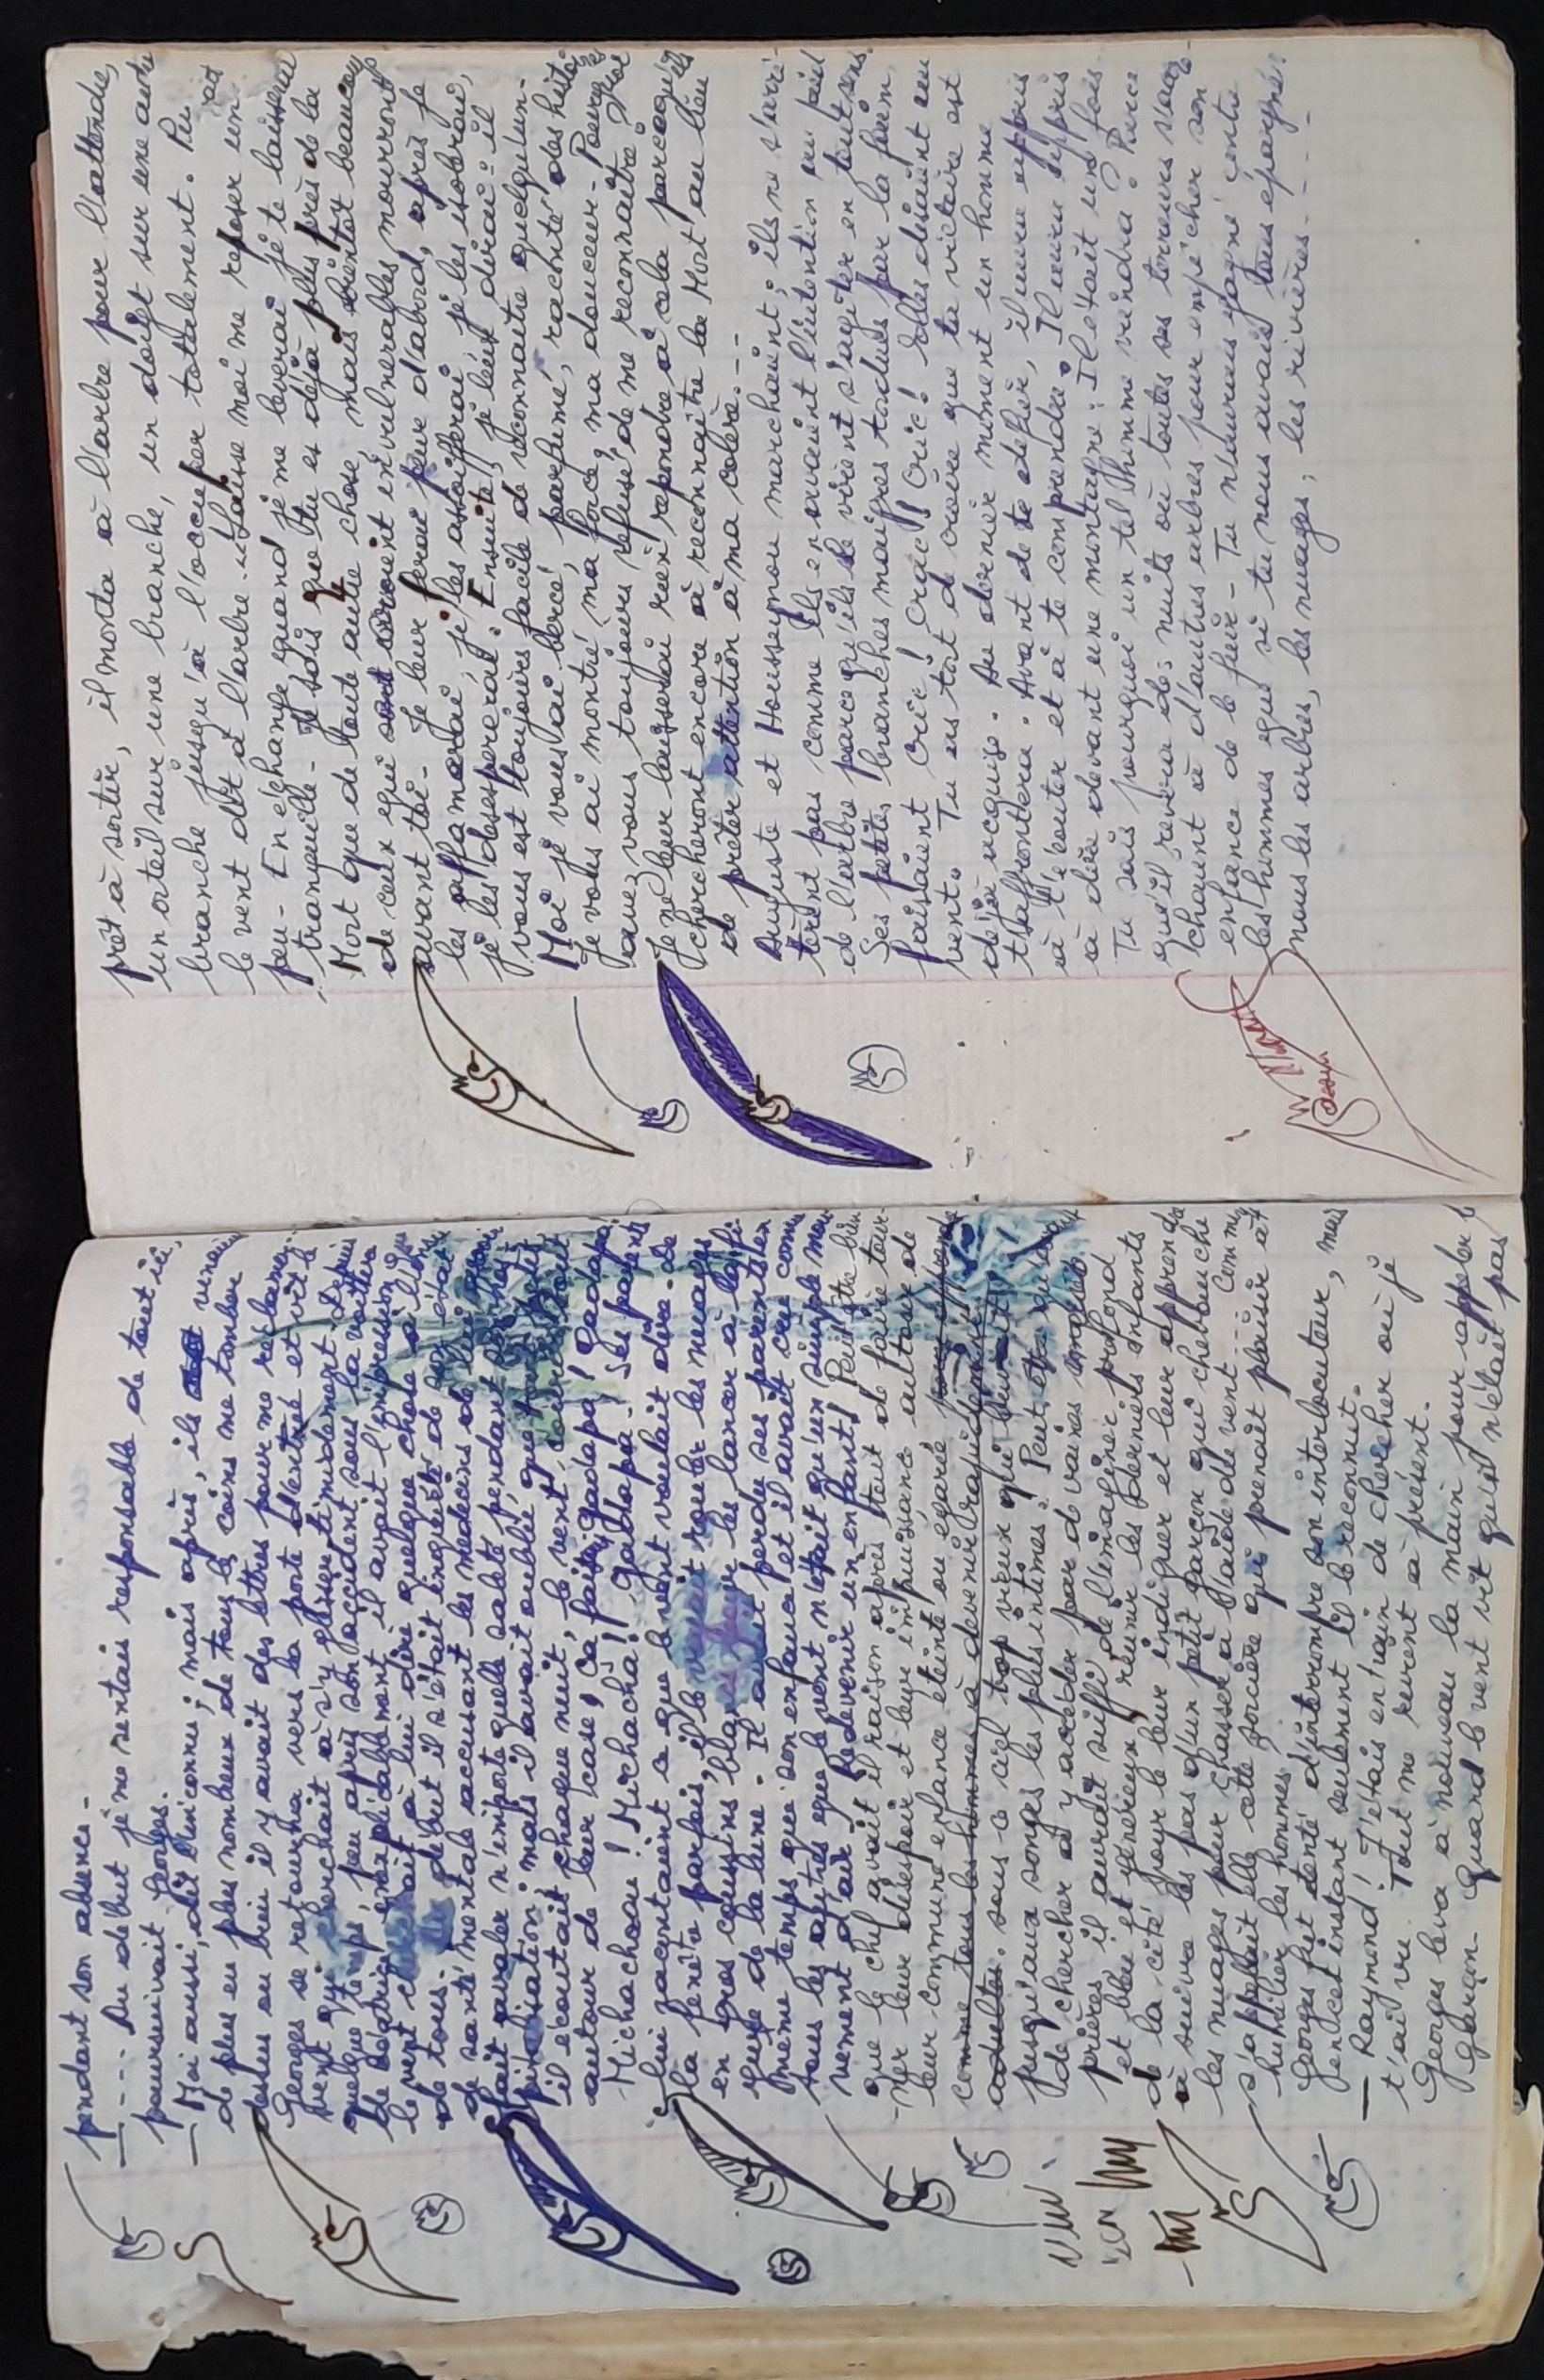 pendant son absence -
— .... Au début je me sentais responsable de tout ici,
poursuivait Georges.
— Moi aussi, dit l'inconnu; mais après, ils venaient
de plus en plus nombreux de tous les coins me tomber
dessus ou bien il y avait des lettres pour me relancer.
Georges se retourna vers la porte d'entrée et vit le
vent qui cherchait à s'y glisser timidement. Depuis
quelque temps, peu après son accident sous la voiture
de Béatrice, inexplicablement il avait l'impression que
le vent cherchait à lui dire quelque chose à l'insu
de tous. Au début il s'était inquiété de son état
de santé mentale accusant les médecins de lui avoir
fait avaler n'importe quelle saleté pendant son hos-
pitalisation; mais il avait oublié que tout petit
il écoutait chaque nuit, le vent, courir tout
autour de leur case! Ça faisait gadapa! Gadapa!
Michachaou! Michachà! Gadapa! Ses parents
lui racontaient ce que le vent voulait dire. De
la fenêtre parfois, il le voyait rouler les nuages
en gros coussins blancs pour les lancer à la fi-
gure de la lune. Il avait perdu ses parents en
même temps que son enfance et il avait cru comme
tous les autres que le vent n'était qu'un simple mou-
vement d'air! Redevenir un enfant! Peut être bien
que le chef avait il raison après tout de faire tour-
-ner leur désespoir et leur impuissance autour de
leur commune enfance éteinte ou égarée
comme tous les hommes à devenir vraiment
adultes. sous ce ciel trop vieux qui
jusqu'aux songes les plus intimes! Peut être qu'au lieu
de chercher à y accéder par de vaines
prières, il aurait suffi, de l'imaginer profond
et bleu et généreux, réunir les derniers enfants
de la cité pour le leur indiquer et leur apprendre
à suivre les pas d'un petit garçon qui chevauche
les nuages pour chasser à l'aide du vent.... Comment
s'appelait elle cette sorcière qui prenait plaisir à
humilier les hommes.
Georges fut tenté d'interrompre son interlocuteur, mais
en cet instant seulement il le reconnut.
— Raymond! J'étais en train de chercher où je
t'ai vu. Tout me revient à présent.
Georges leva à nouveau la main pour appeler le
garçon. Quand le vent vit qu'il n'était pas
prêt à sortir, il monta à l'arbre pour l'attendre,
un orteil sur une branche, un doigt sur une autre
branche jusqu'à l'occuper totalement. Puis
le vent dit à l'arbre. «Laisse moi me reposer un
peu - En échange quand je me leverai je te laisserai
tranquille - Je sais que tu es déjà plus près de la
Mort que de toute autre chose, mais bientôt beaucoup
de ceux qui sont invulnérables mourront
avant toi - Je leur ferai peur d'abord, après je
les affamerai, je les assoifferai, je les isolerai,
je les désespérerai. Ensuite, je leur dirai: il
vous est toujours facile de reconnaître quelqu'un -
Moi je vous ai bercé, parfumé, raconté des histoires
Je vous ai montré ma force, ma douceur - Pourquoi
avez vous toujours refusé de me reconnaître?
Je ne leur laisserai rien répondre à cela parcequ'ils
chercheront encore à reconnaître la Mort au lieu
de prêter attention à ma colère. - - -
Auguste et Housseynou marchaient; ils ne s'arrê-
tèrent pas comme ils en avaient l'intention au pied
de l'arbre parce qu'ils le virent s'agiter en tout sens.
Ses petites branches maigres tordues par la faim,
faisaient Cric! Crac! Cric! Elles disaient au
vent. Tu as tort de croire que ta victoire est
déjà acquise. Au dernier moment un homme
t'affrontera. Avant de te défier, il aura appris
à t'écouter et à te comprendre. Il aura appris
à dire devant une montagne: Il était une fois
Tu sais pourquoi un tel homme viendra? Parce
qu'il revivra des nuits où toutes ses terreurs s'accro-
chaient à d'autres arbres pour empêcher son
enfance de le fuir - Tu n'auras gagné contre
les hommes que si tu nous avais tous épargnés:
nous les arbres, les nuages; les rivières. - - -